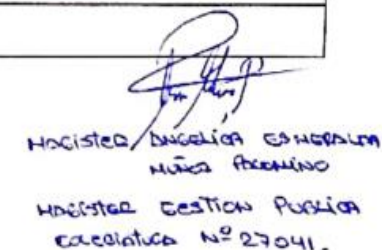 MAGISTER ANGELICA ESMERALDA
MUÑOZ PALOMINO
MAGISTER GESTION PUBLICA
COLEGIATURA Nº 27041.